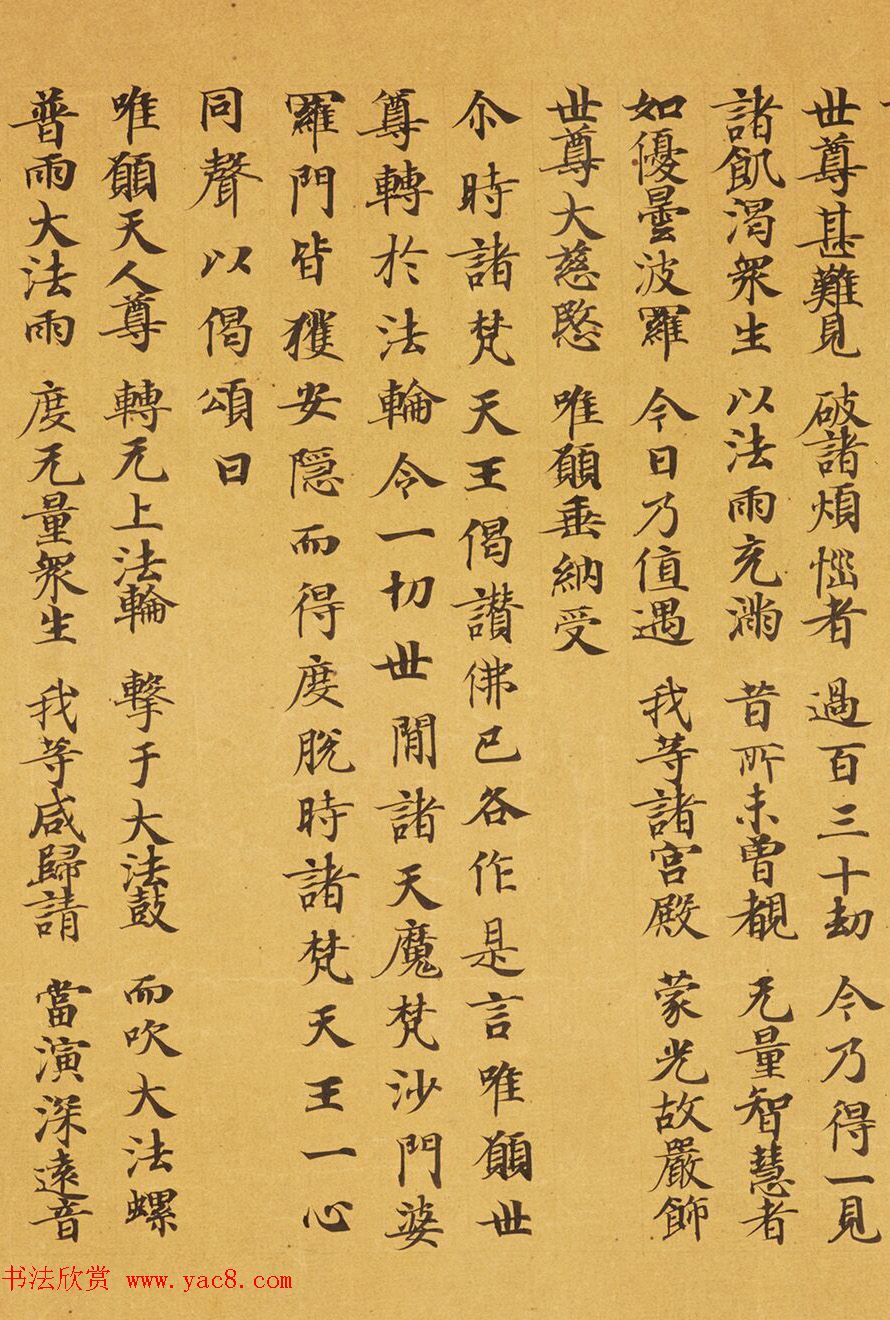 世尊甚難見 破諸煩惱者 過百三十劫 今乃得一見
諸飢渴衆生 以法雨充滿 昔所未曾覩 无量智慧者
如優曇波羅 今日乃值遇 我等諸宮殿 蒙光故嚴飾
世尊大慈愍 唯願垂納受
尒時諸梵天王偈讃佛已各作是言唯願世
尊轉於法輪令一切世間諸天魔梵沙門婆
羅門皆獲安隱而得度脫時諸梵天王一心
同聲以偈頌曰
唯願天人尊 轉无上法輪 擊于大法鼓 而吹大法螺
普雨大法雨 度无量衆生 我等咸歸請 當演深遠音
书法欣赏 www.yac8.com